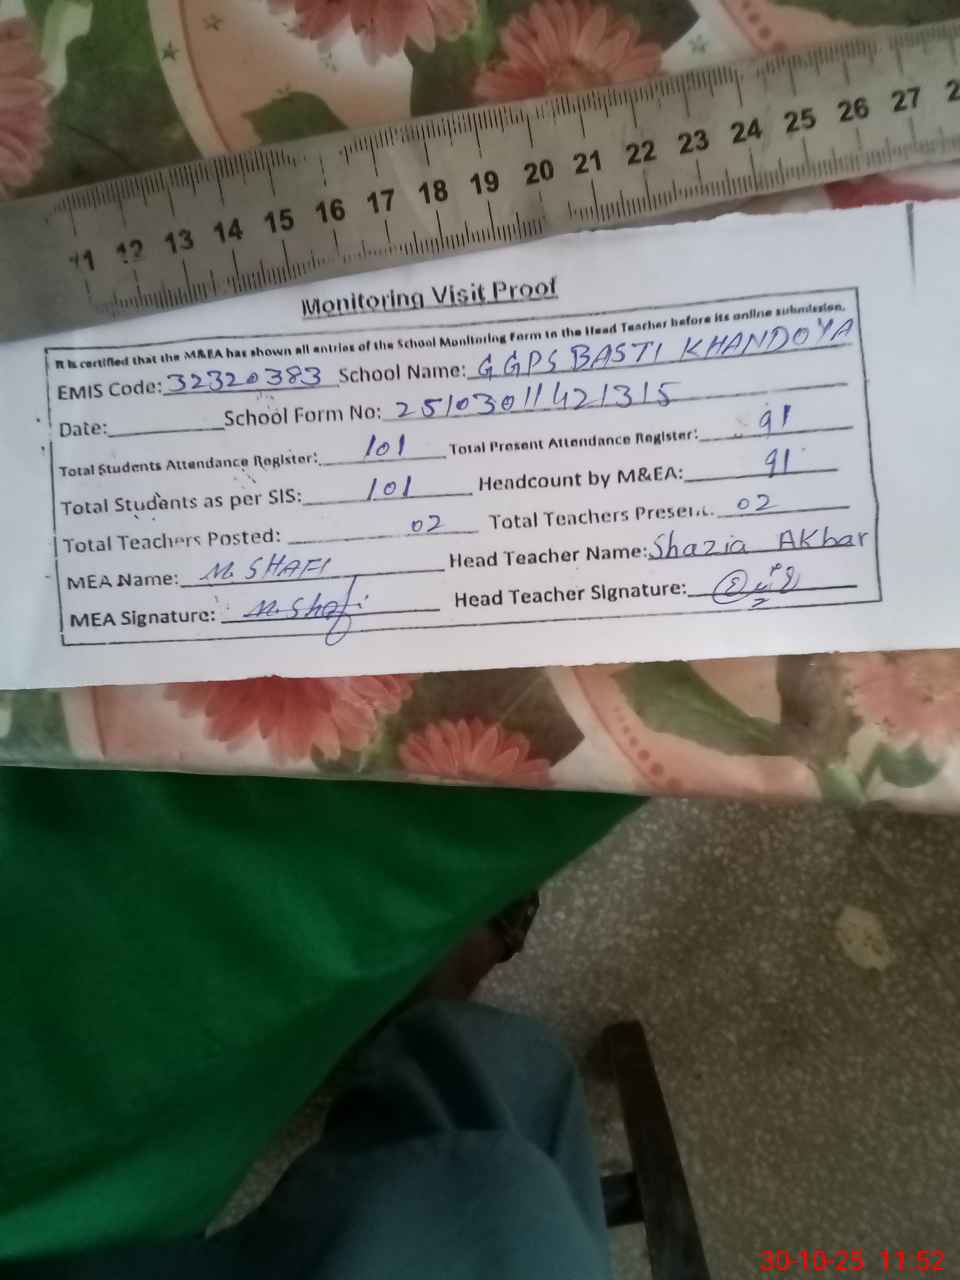 11 12 13 14 15 16 17 18 19 20 21 22 23 24 25 26 27
Monitoring Visit Proof
It is certified that the M&EA has shown all entries of the School Monitoring Form to the Head Teacher before its online submission.
EMIS Code: 32320383 School Name: GGPS BASTI KHANDOYA
Date: School Form No: 25103011421315
Total Students Attendance Register: 101 Total Present Attendance Register: 91
Total Students as per SIS: 101 Headcount by M&EA: 91
Total Teachers Posted: 02 Total Teachers Present: 02
MEA Name: M. SHAFI Head Teacher Name: Shazia AKbar
MEA Signature: M. Shafi Head Teacher Signature:
30-10-25 11:52